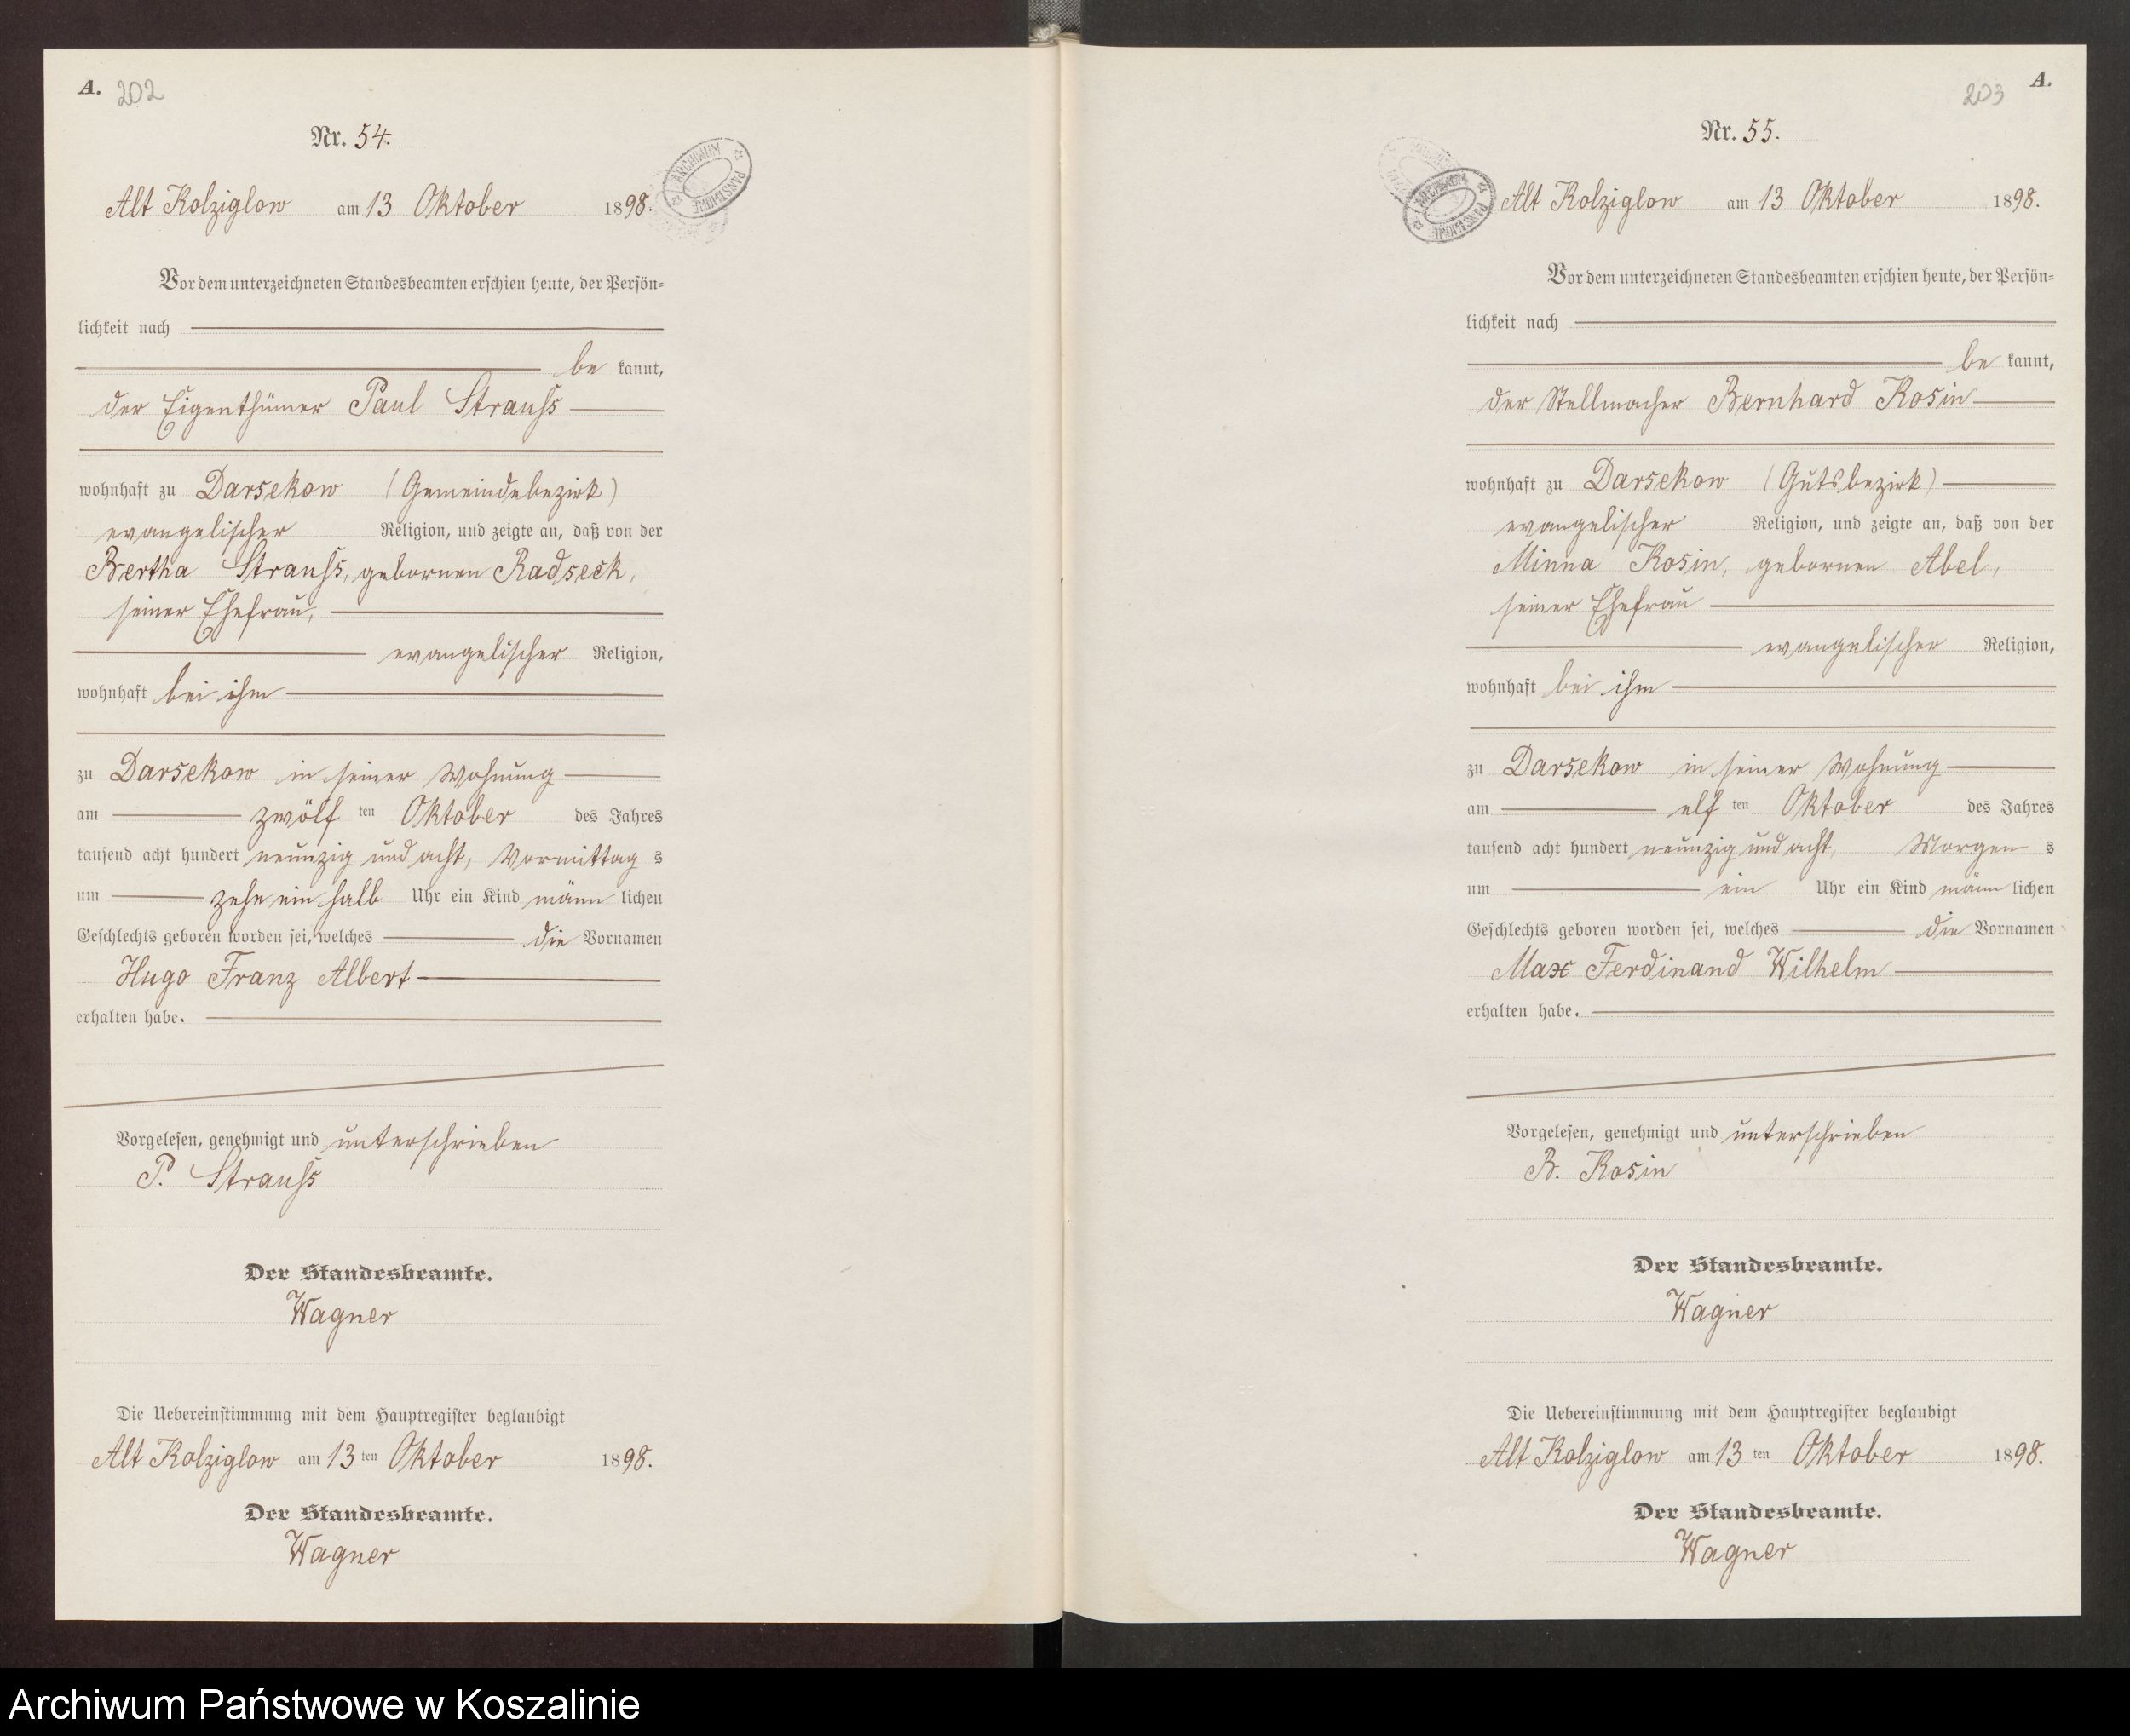 A. 202
Nr. 54.
ARCHIWUM PAŃSTWOWE
Alt Kolziglow am 13 Oktober 1898.
Vor dem unterzeichneten Standesbeamten erschien heute, der Persön-
lichkeit nach
be kannt,
der Eigenthümer Paul Strauss
wohnhaft zu Darsekow (Gemeindebezirk)
evangelischer Religion, und zeigte an, daß von der
Bertha Strauss, gebornen Radseck,
seiner Ehefrau,
evangelischer Religion,
wohnhaft bei ihm
zu Darsekow in seiner Wohnung
am zwölf ten Oktober des Jahres
tausend acht hundert neunzig und acht, Vormittag s
um zehn ein halb Uhr ein Kind männ lichen
Geschlechts geboren worden sei, welches die Vornamen
Hugo Franz Albert
erhalten habe.
Vorgelesen, genehmigt und unterschrieben
P. Strauss
Der Standesbeamte.
Wagner
Die Uebereinstimmung mit dem Hauptregister beglaubigt
Alt Kolziglow am 13 ten Oktober 1898.
Der Standesbeamte.
Wagner
203 A.
Nr. 55.
ARCHIWUM PAŃSTWOWE
Alt Kolziglow am 13 Oktober 1898.
Vor dem unterzeichneten Standesbeamten erschien heute, der Persön-
lichkeit nach
be kannt,
der Stellmacher Bernhard Kosin
wohnhaft zu Darsekow (Gutsbezirk)
evangelischer Religion, und zeigte an, daß von der
Minna Kosin, gebornen Abel,
seiner Ehefrau
evangelischer Religion,
wohnhaft bei ihm
zu Darsekow in seiner Wohnung
am elf ten Oktober des Jahres
tausend acht hundert neunzig und acht, Morgen s
um ein Uhr ein Kind männ lichen
Geschlechts geboren worden sei, welches die Vornamen
Max Ferdinand Wilhelm
erhalten habe.
Vorgelesen, genehmigt und unterschrieben
B. Kosin
Der Standesbeamte.
Wagner
Die Uebereinstimmung mit dem Hauptregister beglaubigt
Alt Kolziglow am 13 ten Oktober 1898.
Der Standesbeamte.
Wagner
Archiwum Państwowe w Koszalinie